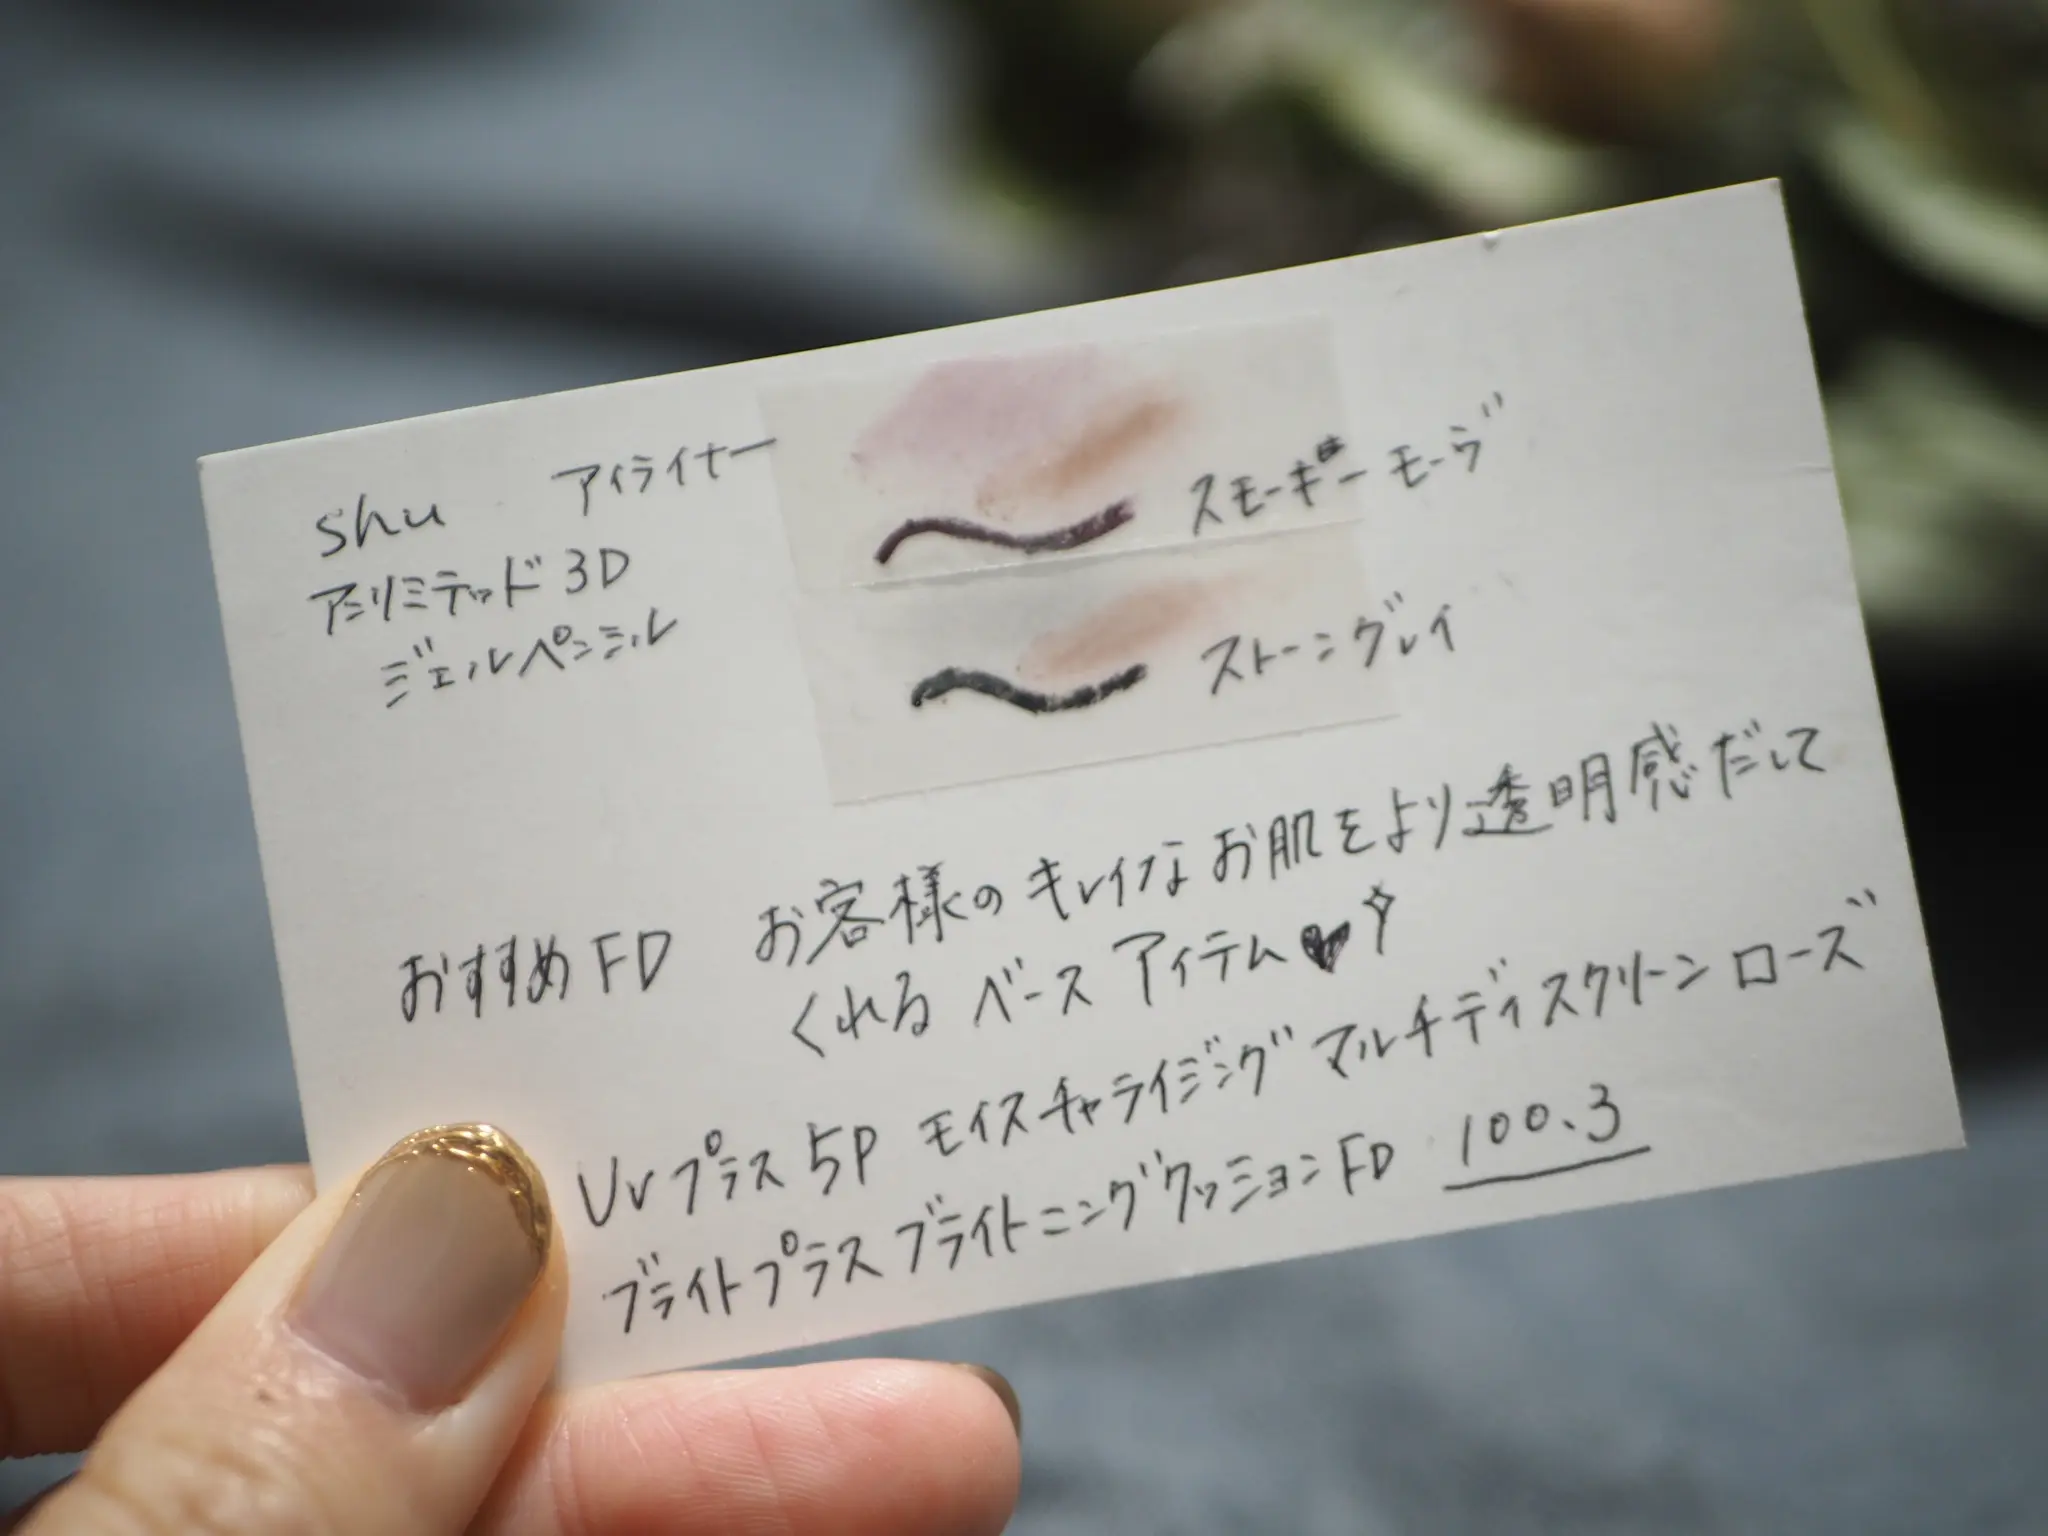 shu アイライナー
アンリミテッド 3D
ジェルペンシル
スモーキー モーヴ
ストーングレイ
おすすめFD お客様のキレイなお肌をより透明感だして
くれる ベースアイテム♥✧
UVプラス 5P モイスチャライジング マルチディスクリーン ローズ
ブライトプラス ブライトニングクッションFD 100.3